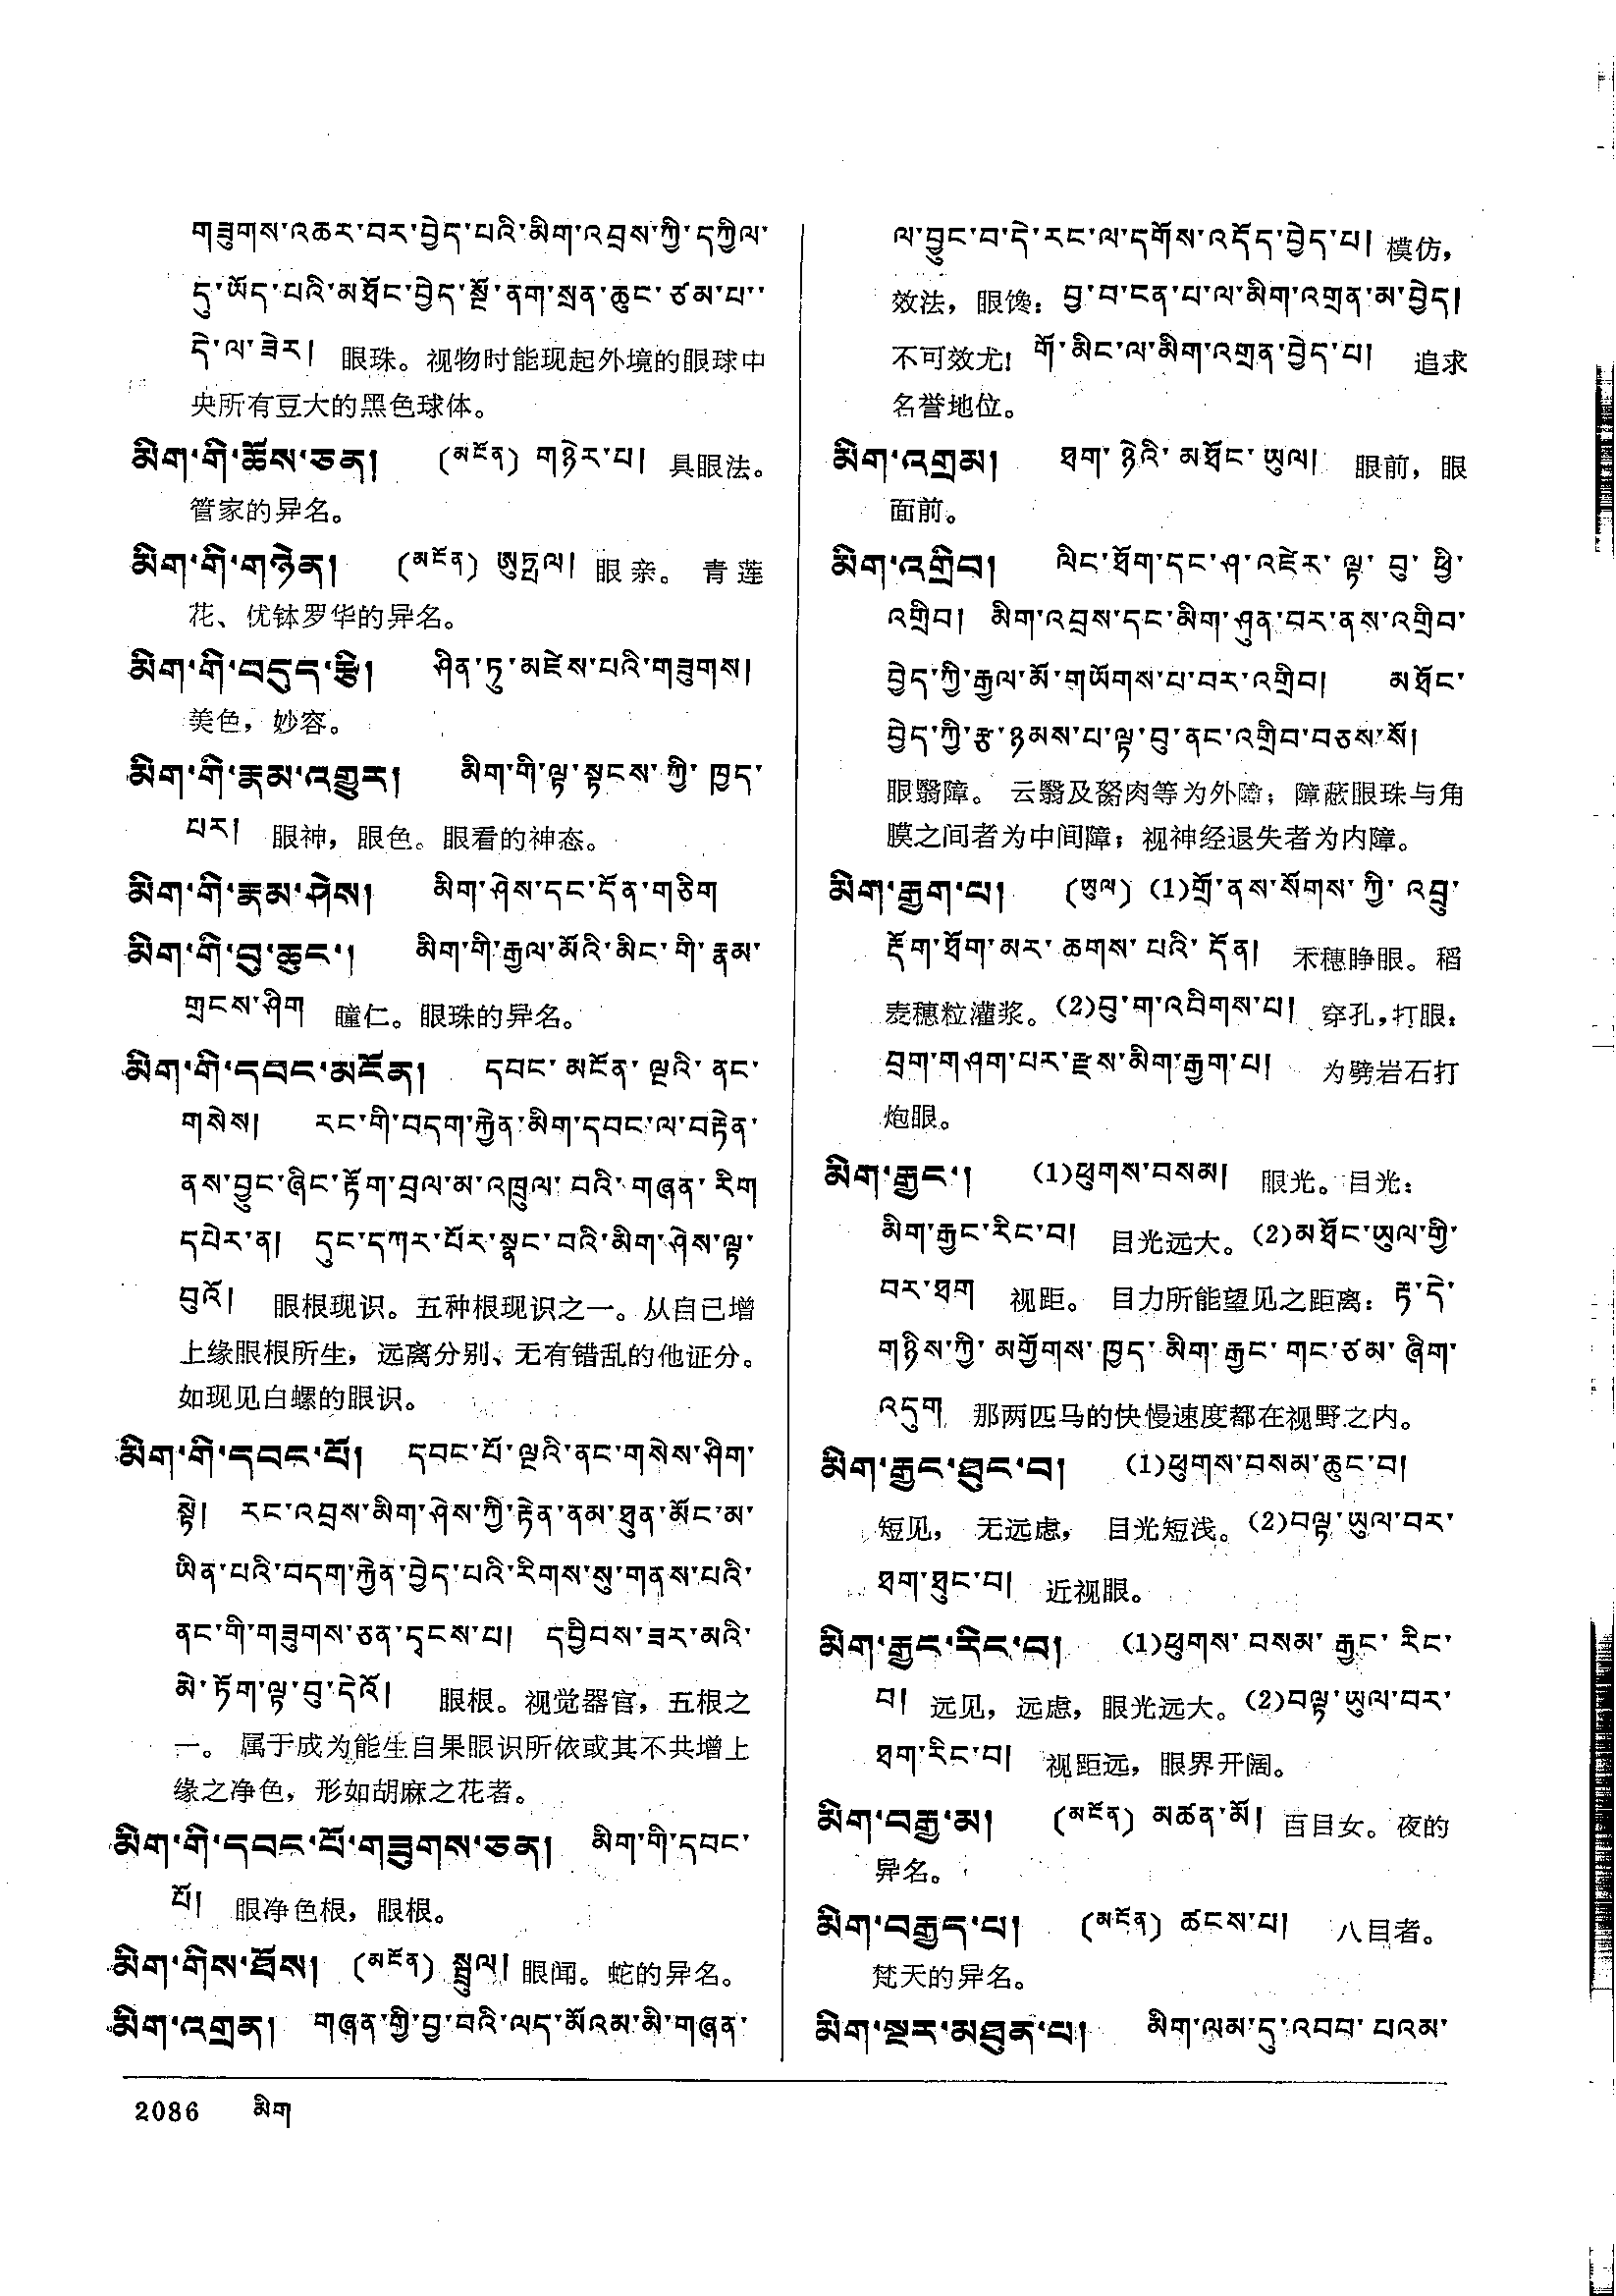 གཟུགས་འཆར་བར་བྱེད་པའི་མིག་འབྲས་ཀྱི་དཀྱིལ་
དུ་ཡོད་པའི་མཐོང་བྱེད་སྔོ་ནག་སྲན་ཆུང་ཙམ་པ་་
དེ་ལ་ཟེར། 眼珠。视物时能现起外境的眼球中
央所有豆大的黑色球体。
མིག་གི་ཆོས་ཅན། (མངོན) གཉེར་པ། 具眼法。
管家的异名。
མིག་གི་གཉེན། (མངོན) ཨུཏྤལ། 眼亲。 青莲
花、优钵罗华的异名。
མིག་གི་བདུད་རྩི། ཤིན་ཏུ་མཛེས་པའི་གཟུགས།
美色，妙容。
མིག་གི་རྣམ་འགྱུར། མིག་གི་ལྟ་སྟངས་ཀྱི་ཁྱད་
པར། 眼神，眼色。眼看的神态。
མིག་གི་རྣམ་ཤེས། མིག་ཤེས་དང་དོན་གཅིག
མིག་གི་བུ་ཆུང་། མིག་གི་རྒྱལ་མོའི་མིང་གི་རྣམ་
གྲངས་ཤིག 瞳仁。眼珠的异名。
མིག་གི་དབང་མངོན། དབང་མངོན་ལྔའི་ནང་
གསེས། རང་གི་བདག་རྐྱེན་མིག་དབང་ལ་བརྟེན་
ནས་བྱུང་ཞིང་རྟོག་བྲལ་མ་འཁྲུལ་བའི་གཞན་རིག
དཔེར་ན། དུང་དཀར་པོར་སྣང་བའི་མིག་ཤེས་ལྟ་
བུའོ། 眼根现识。五种根现识之一。从自己增
上缘眼根所生，远离分别、无有错乱的他证分。
如现见白螺的眼识。
མིག་གི་དབང་པོ། དབང་པོ་ལྔའི་ནང་གསེས་ཤིག་
སྟེ། རང་འབྲས་མིག་ཤེས་ཀྱི་རྟེན་ནམ་ཐུན་མོང་མ་
ཡིན་པའི་བདག་རྐྱེན་བྱེད་པའི་རིགས་སུ་གནས་པའི་
ནང་གི་གཟུགས་ཅན་དྭངས་པ། དབྱིབས་ཟར་མའི་
མེ་ཏོག་ལྟ་བུ་དེའོ། 眼根。视觉器官，五根之
一。 属于成为能生自果眼识所依或其不共增上
缘之净色，形如胡麻之花者。
མིག་གི་དབང་པོ་གཟུགས་ཅན། མིག་གི་དབང་
པོ། 眼净色根，眼根。
མིག་གིས་ཐོས། (མངོན) སྦྲུལ། 眼闻。蛇的异名。
མིག་འགྲན། གཞན་གྱི་བྱ་བའི་ལད་མོའམ་མི་གཞན་
ལ་བྱུང་བ་དེ་རང་ལ་དགོས་འདོད་བྱེད་པ། 模仿，
效法，眼馋：བྱ་བ་ངན་པ་ལ་མིག་འགྲན་མ་བྱེད།
不可效尤！གོ་མིང་ལ་མིག་འགྲན་བྱེད་པ། 追求
名誉地位。
མིག་འགྲམ། ཐག་ཉེའི་མཐོང་ཡུལ། 眼前，眼
面前。
མིག་འགྲིབ། ལིང་ཐོག་དང་ཤ་འཛེར་ལྟ་བུ་ཕྱི་
འགྲིབ། མིག་འབྲས་དང་མིག་ཤུན་བར་ནས་འགྲིབ་
བྱེད་ཀྱི་རྒྱལ་མོ་གཡོགས་པ་བར་འགྲིབ། མཐོང་
བྱེད་ཀྱི་རྩ་ཉམས་པ་ལྟ་བུ་ནང་འགྲིབ་བཅས་སོ།
眼翳障。 云翳及胬肉等为外障；障蔽眼珠与角
膜之间者为中间障；视神经退失者为内障。
མིག་རྒྱག་པ། (ཡུལ) (1)གྲོ་ནས་སོགས་ཀྱི་འབྲུ་
རྡོག་ཐོག་མར་ཆགས་པའི་དོན། 禾穗睁眼。稻
麦穗粒灌浆。(2)བུ་ག་འབིགས་པ། 穿孔，打眼：
བྲག་གཤག་པར་རྫས་མིག་རྒྱག་པ། 为劈岩石打
炮眼。
མིག་རྒྱང་། (1)ཕུགས་བསམ། 眼光。目光：
མིག་རྒྱང་རིང་བ། 目光远大。(2)མཐོང་ཡུལ་གྱི་
བར་ཐག 视距。 目力所能望见之距离：རྟ་དེ་
གཉིས་ཀྱི་མགྱོགས་ཁྱད་མིག་རྒྱང་གང་ཙམ་ཞིག་
འདུག 那两匹马的快慢速度都在视野之内。
མིག་རྒྱང་ཐུང་བ། (1)ཕུགས་བསམ་ཆུང་བ།
短见， 无远虑， 目光短浅。(2)བལྟ་ཡུལ་བར་
ཐག་ཐུང་བ། 近视眼。
མིག་རྒྱང་རིང་བ། (1)ཕུགས་བསམ་རྒྱང་རིང་
བ། 远见，远虑，眼光远大。(2)བལྟ་ཡུལ་བར་
ཐག་རིང་བ། 视距远，眼界开阔。
མིག་བརྒྱ་མ། (མངོན) མཚན་མོ། 百目女。夜的
异名。
མིག་བརྒྱད་པ། (མངོན) ཚངས་པ། 八目者。
梵天的异名。
མིག་སྔར་མཐུན་པ། མིག་ལམ་དུ་འབབ་པའམ་
2086 མིག